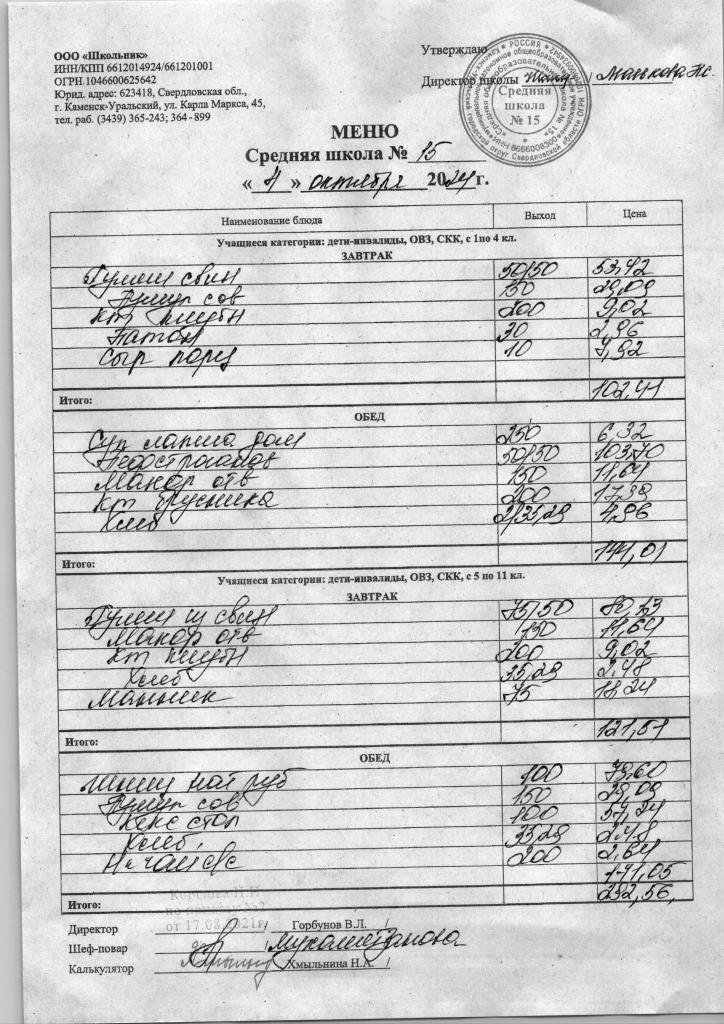 ООО «Школьник»
ИНН/КПП 6612014924/661201001
ОГРН.1046600625642
Юрид. адрес: 623418, Свердловская обл.,
г. Каменск-Уральский, ул. Карла Маркса, 45,
тел. раб. (3439) 365-243; 364-899
Утверждаю
Директор школы / Манькова
РОССИЯ
Средняя
школа
№ 15
МЕНЮ
Средняя школа № 15
« 4 » октября 2024 г.
Наименование блюда Выход Цена
Учащиеся категории: дети-инвалиды, ОВЗ, СКК, с 1по 4 кл.
ЗАВТРАК
Гуляш свин 50/50 53,42
150 29,09
Кт 200 9,02
Батон 30 2,96
Сыр порц 10 7,92
Итого: 102,41
ОБЕД
Суп лапша дом 250 6,32
Бефстроганов 50/50 103,70
Макар отв 150 11,64
Кт брусника 200 17,39
Хлеб 2/35,29 4,96
Итого: 144,01
Учащиеся категории: дети-инвалиды, ОВЗ, СКК, с 5 по 11 кл.
ЗАВТРАК
Гуляш свин 75/50 80,13
Макар отв 150 11,64
Кт 200 9,02
Хлеб 35,29 2,48
Манник 75 18,24
Итого: 121,51
ОБЕД
нат руб 100 79,60
150 29,09
Кекс стол 100 57,24
Хлеб 35,29 2,48
Н-чай с/с 200 2,64
171,05
Итого: 292,56
от 17.08.2021г.
Директор / Горбунов В.Л. /
Шеф-повар / Мухаметзянова
Калькулятор / Хмыльнина Н.А. /